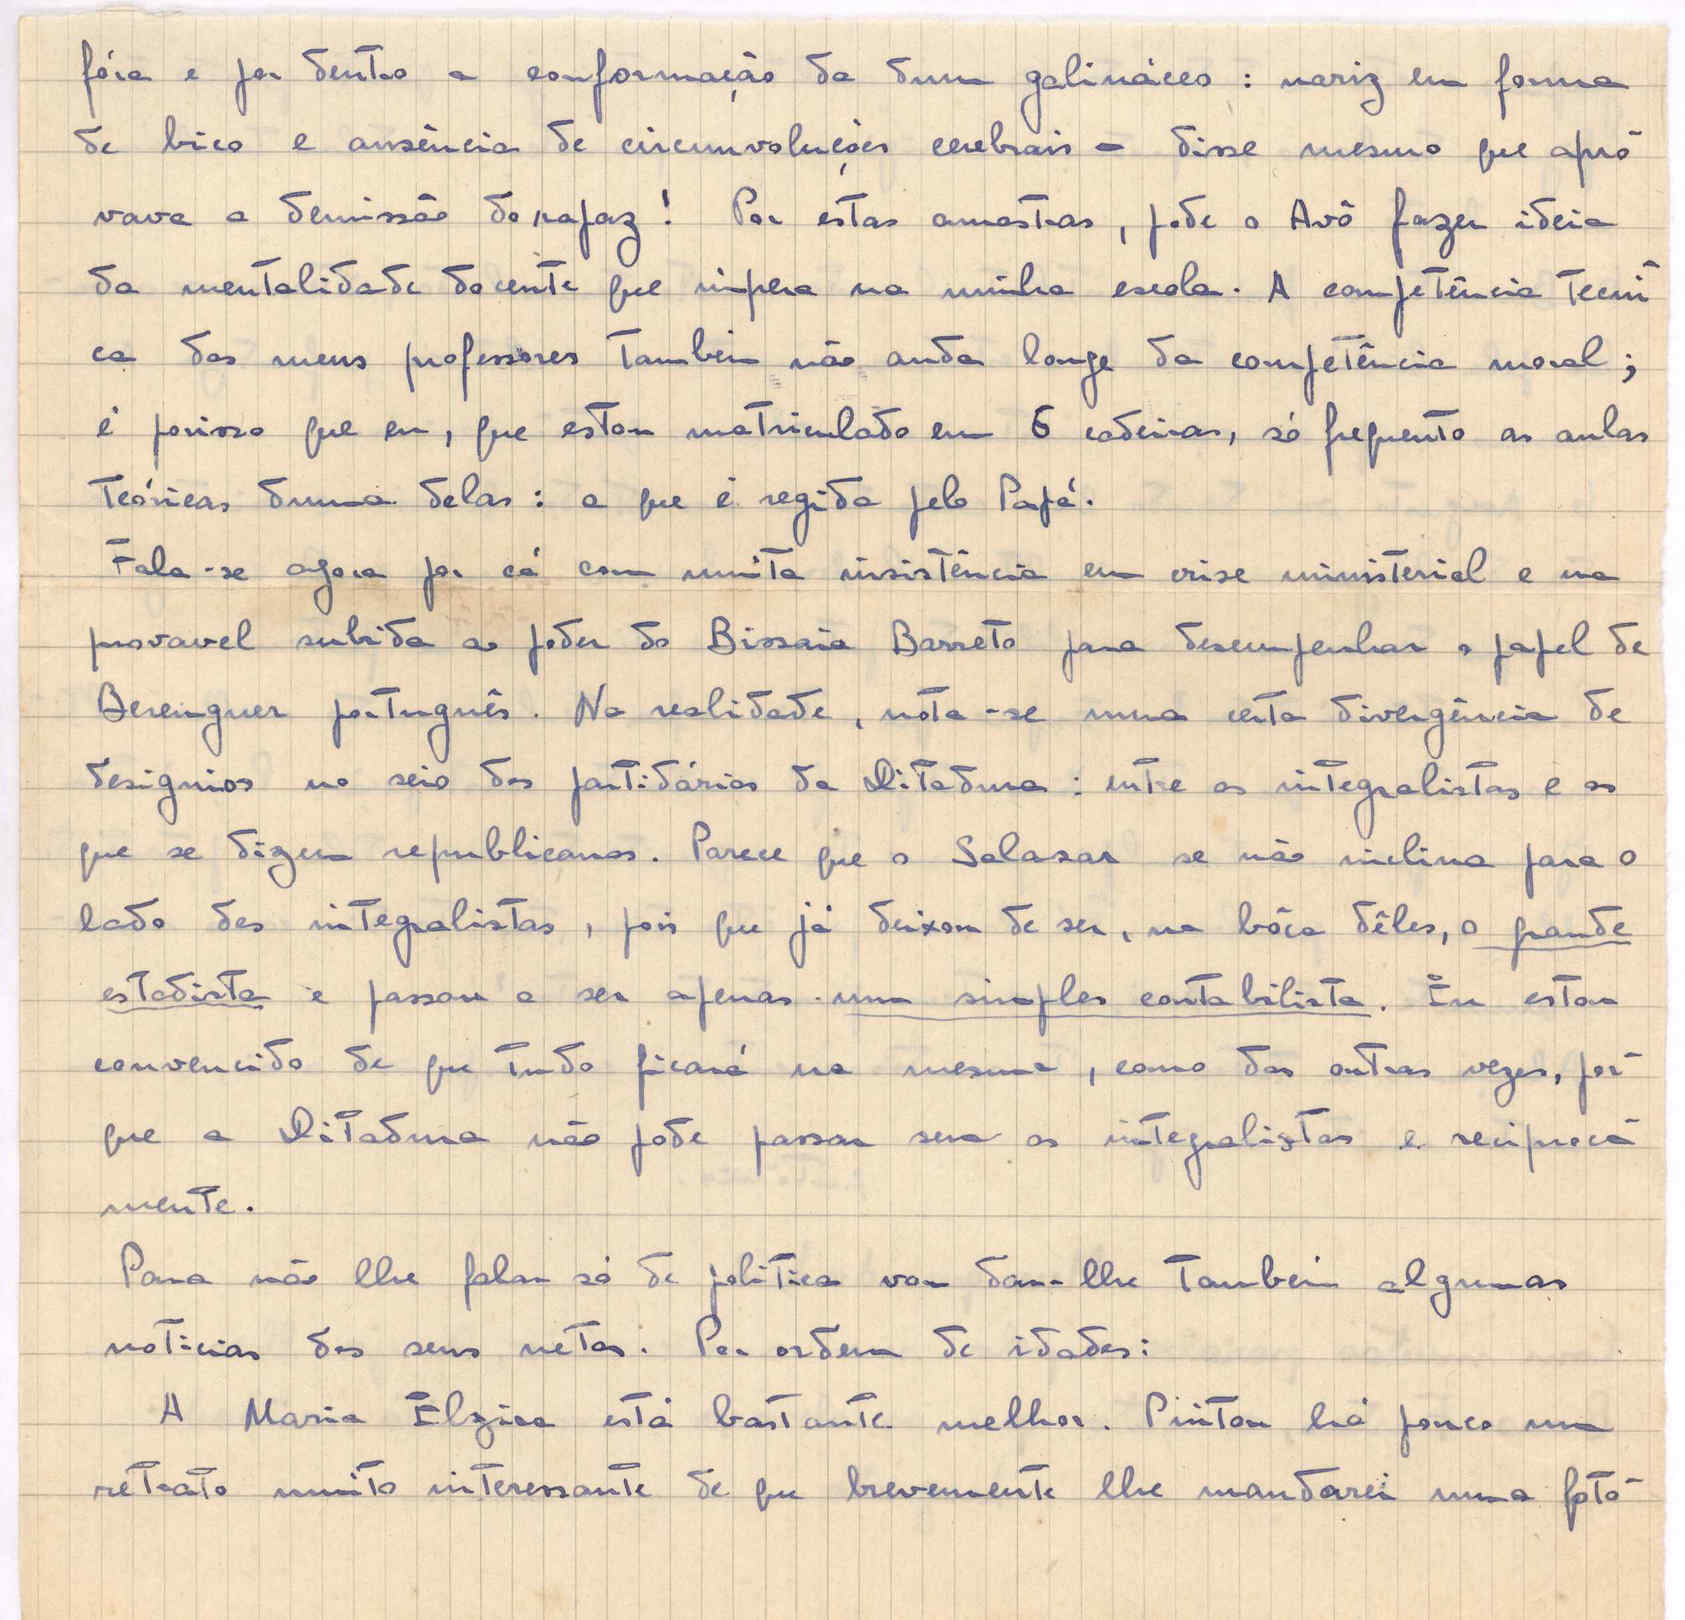 fóra e por dentro a conformação da dum galináceo: nariz em forma
de bico e ausência de circumvoluções cerebrais - disse mesmo que apro-
vava a demissão do rapaz! Por estas amostras, pode o Avô fazer ideia
da mentalidade docente que impera na minha escola. A competência tecni-
ca dos meus professores tambem não anda longe da competência moral;
é porisso que eu, que estou matriculado em 6 cadeiras, só frequento as aulas
teóricas duma delas: a que é regida pelo Papá.
Fala-se agora por cá com muita insistência em crise ministerial e na
provavel subida ao poder do Bissaia Barreto para desempenhar o papel de
Berenguer português. Na realidade, nota-se uma certa divergência de
designios no seio dos partidários da Ditadura: entre os integralistas e os
que se dizem republicanos. Parece que o Salazar se não inclina para o
lado dos integralistas, pois que já deixou de ser, na bôca dêles, o grande
estadista e passou a ser apenas um simples contabilista. Eu estou
convencido de que tudo ficará na mesma, como das outras vezes, por-
que a Ditadura não pode passar sem os integralistas e reciproca-
mente.
Para não lhe falar só de politica vou dar-lhe tambem algumas
noticias dos seus netos. Por ordem de idades:
A Maria Elzira está bastante melhor. Pintou há pouco um
retrato muito interessante de que brevemente lhe mandarei uma foto-